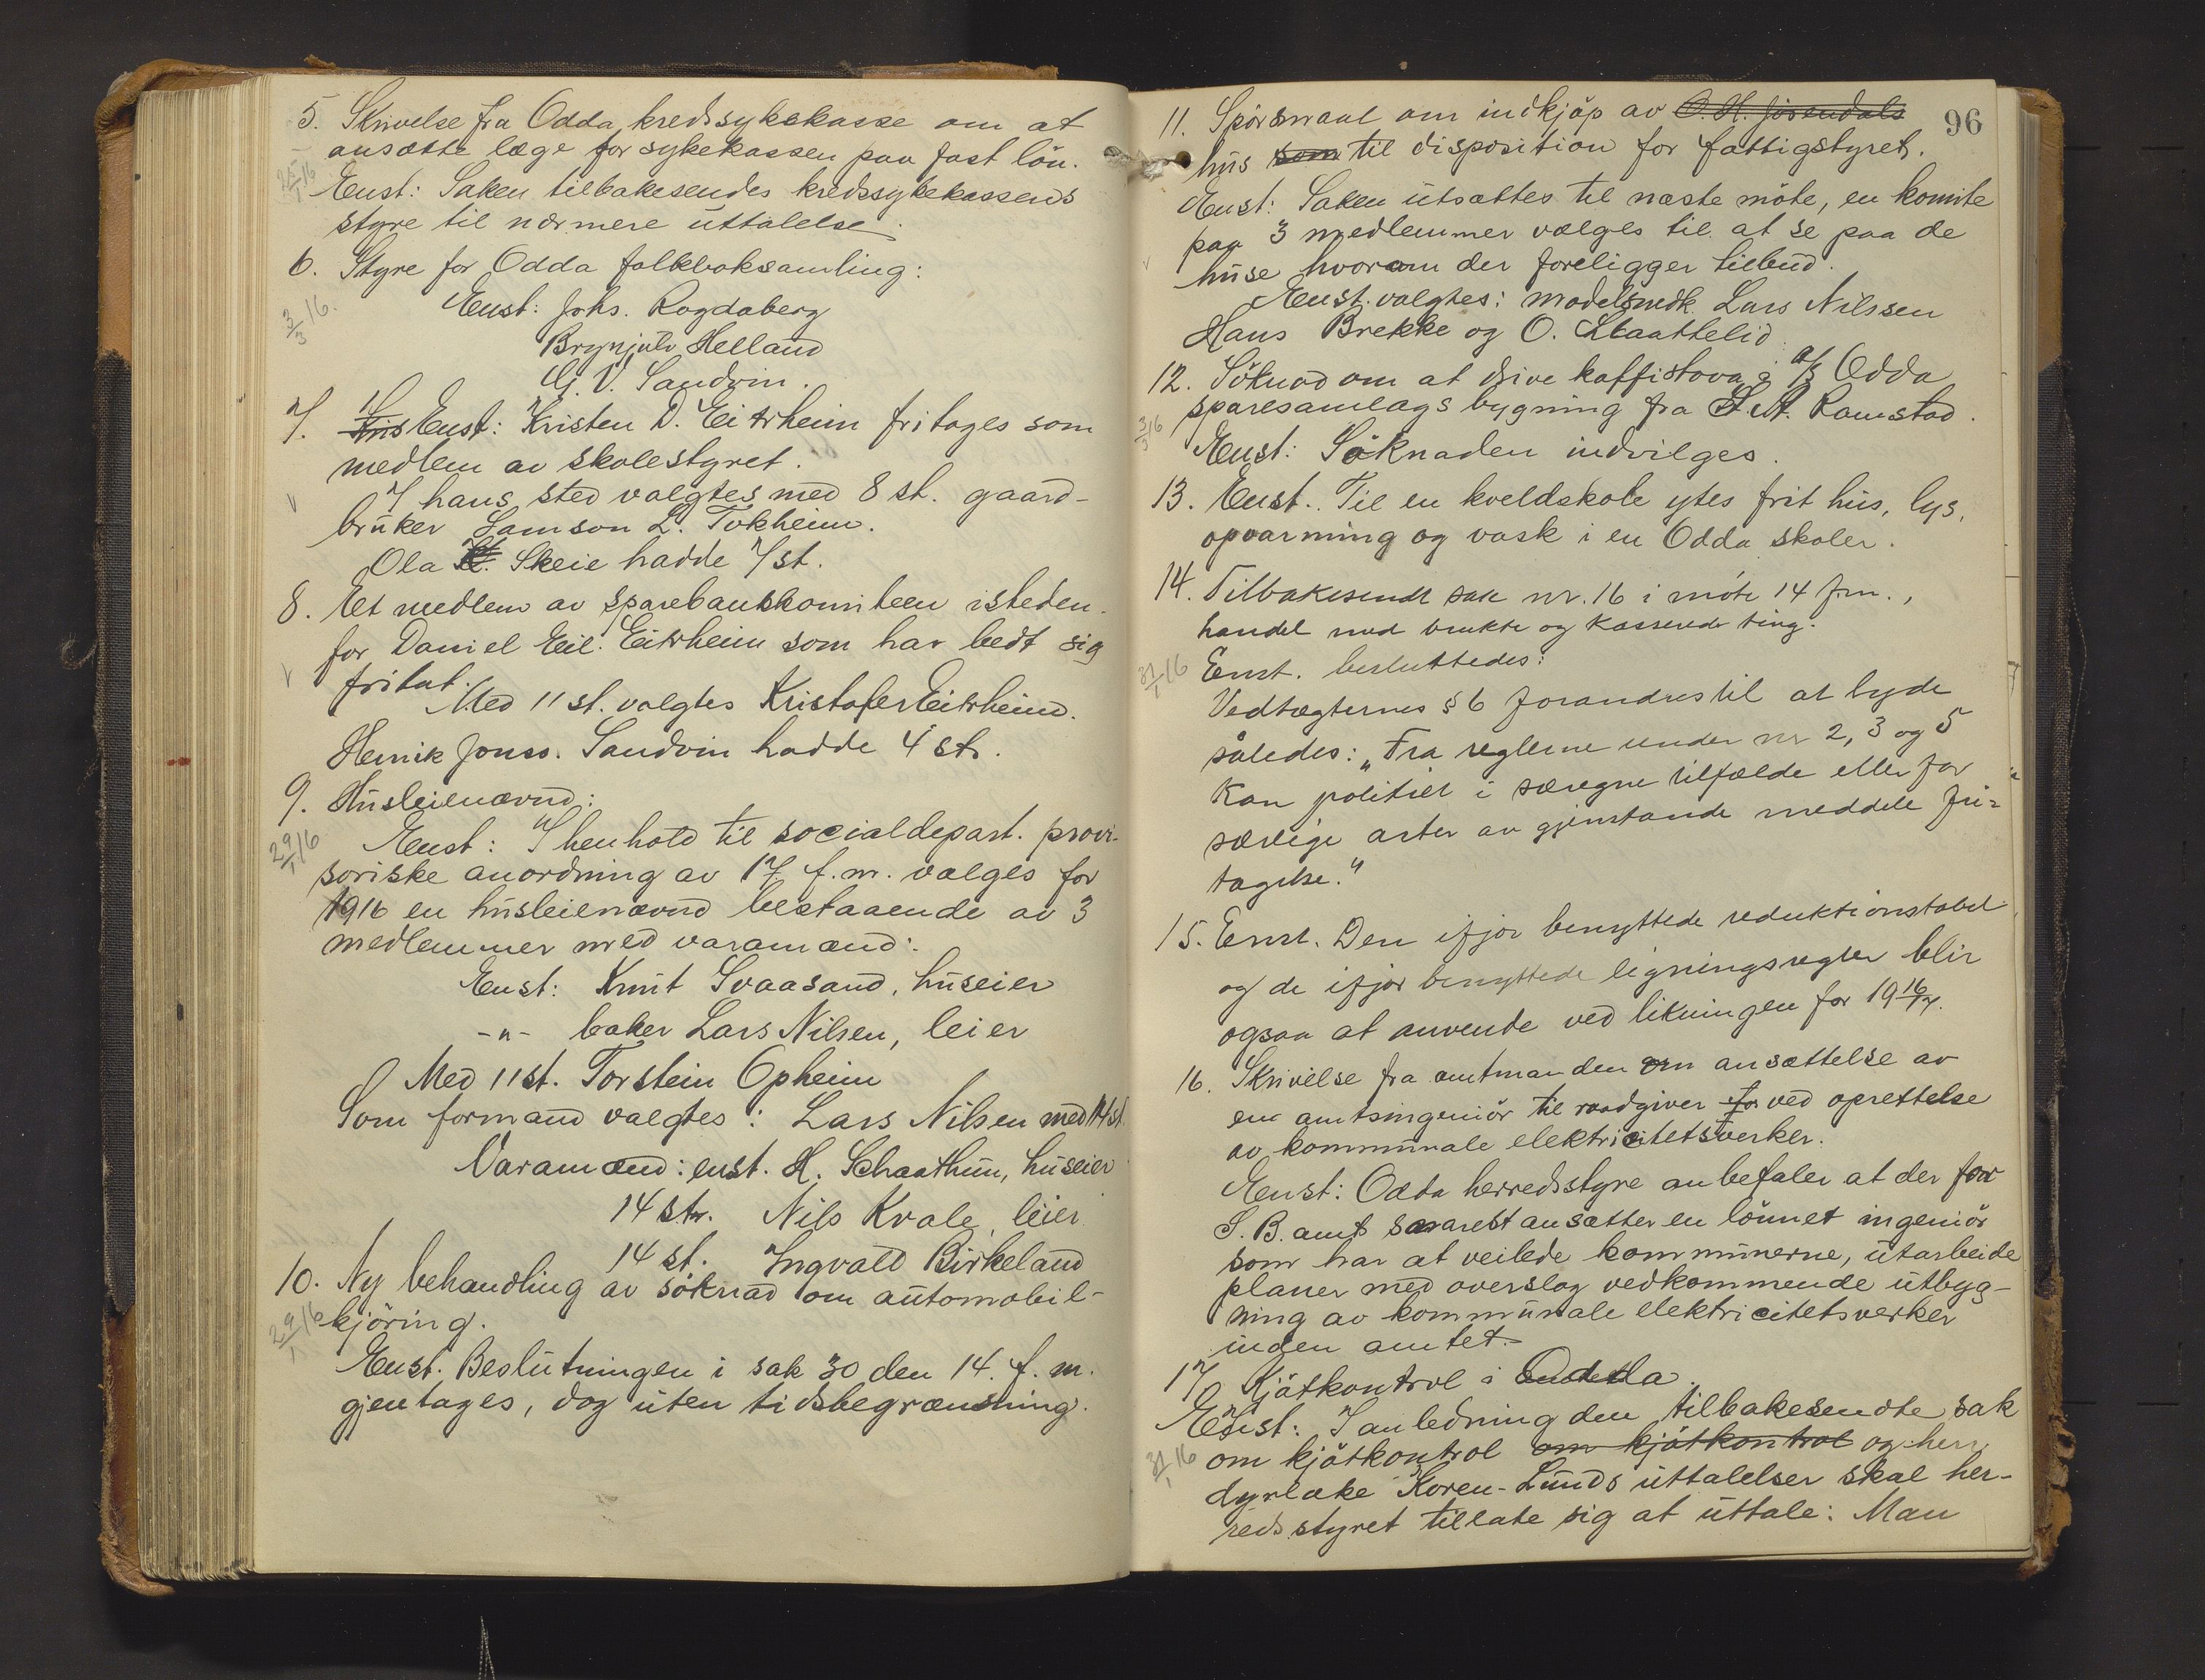 5. Skrivelse fra Odda kredssykekasse om at
ansætte læge for sykekassen paa fast lön.
25/1 16
Enst: Saken tilbakesendes kredssykekassens
styre til nærmere uttalelse.
6. Styre for Odda folkboksamling:
3/3 16.
Enst: Johs. Rogdaberg
Brynjulv Helland
G. V. Sandvin.
7. Enst: Kristen D. Eitrheim fritages som
medlem av skolestyret.
I hans sted valgtes med 8 st. gaard-
bruker Samson L. Tokheim.
Ola Skeie hadde 7 st.
8. Et medlem av sparebankkomiteen isteden-
for Daniel Eil. Eitrheim som har bedt sig
fritat.
Med 11 st. valgtes Kristofer Eitrheim.
Henrik Jonss. Sandvin hadde 4 st.
9. Husleienævnd:
29/1 16
Enst: I henhold til socialdepart. provi-
soriske anordning av 17 f.m. vælges for
1916 en husleienævnd bestaaende av 3
medlemmer med varamænd:
Enst: Knut Svaasand, huseier
-"- baker Lars Nilsen, leier
Med 11 st. Torstein Opheim
Som formand valgtes: Lars Nilsen med 14 st.
Varamænd: enst. H. Schaathun, huseier
14 st. Nils Kvale, leier
14 st. Ingvald Birkeland
10. Ny behandling av söknad om automobil-
kjöring.
29/1 16
Enst. Beslutningen i sak 30 den 14. f. m.
gjentages, dog uten tidsbegrænsning.
96
11. Spörsmaal om indkjöp av O. H. Jösendals
hus som til disposition for fattigstyret.
Enst: Saken utsættes til næste möte, en komite
paa 3 medlemmer vælges til at se paa de
huse hvorom der foreligger tilbud.
Enst. valgtes: modelsnedk. Lars Nilssen
Hans Brekke og O. Staattelid.
12. Söknad om at drive kaffistova i A/S Odda
sparesamlags bygning fra Ramstad.
3/3 16
Enst: Söknaden indvilges.
13. Enst.. Til en kveldskole ytes frit hus, lys,
opvarming og vask i en Odda skoler.
14. Tilbakesendt sak nr. 16 i möte 14 f.m.,
handel med brukte og kasserede ting.
31/1 16
Enst. besluttedes:
Vedtægternes § 6 forandres til at lyde
således: „Fra reglerne under nr 2, 3 og 5
kan politiet i særegne tilfælde eller for
særlige arter av gjenstande meddele fri=
tagelse."
15. Enst. Den ifjor benyttede reduktionstabel
og de ifjor benyttede ligningsregler blir
ogsaa at anvende ved likningen for 1916/17.
16. Skrivelse fra amtmanden om ansættelse av
en amtsingeniör til raadgiver for ved oprettelse
av kommunale elektricitetsverker.
Enst: Odda herredsstyre anbefaler at der for
S. B. amt snarest ansætter en lönnet ingeniör
som har at veilede kommunerne, utarbeide
planer med overslag vedkommende utbyg-
ning av kommunale elektricitetsverker
inden amtet.
17 Kjötkontrol i Odda.
Enst: I anledning den tilbakesendte sak
31/1 16
om kjötkontrol om kjötkontrol og herr
dyrlæke Koren-Lunds uttalelser skal her-
redsstyret tillate sig at uttale: Man